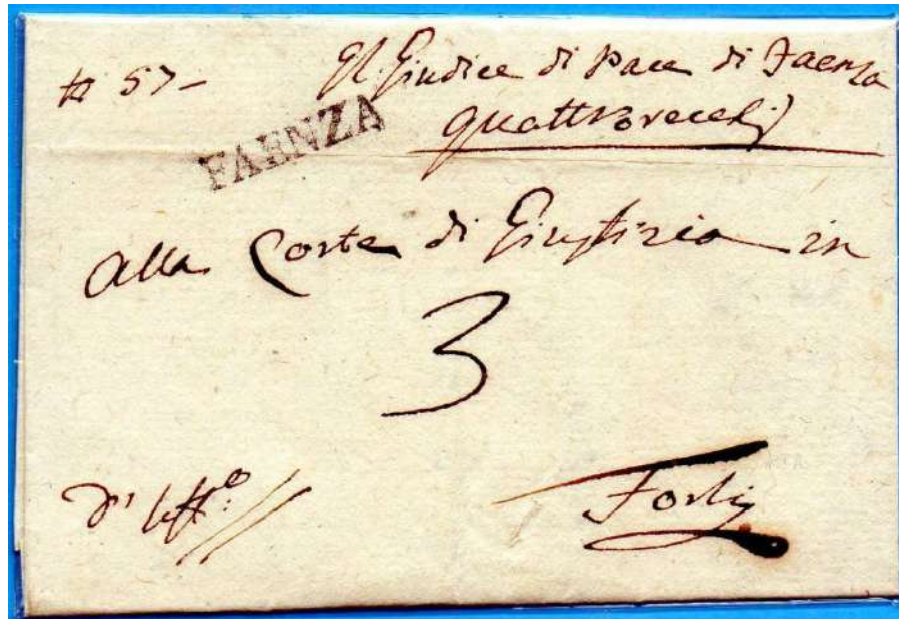 # 57- Il Giudice di Pace di Faenza
Quattrovecchj
FAENZA
alla Corte di Giustizia in
3
d'Uff.º Forlj